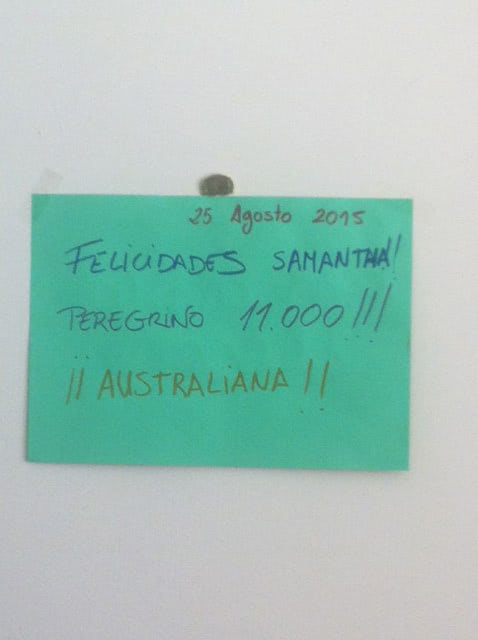 25 Agosto 2015
FELICIDADES SAMANTHA!!
PEREGRINO 11.000!!!
¡¡AUSTRALIANA!!